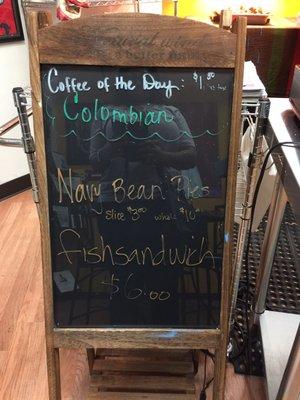 Coffee of the Day: $1.00
Colombian
Navy Bean Pies
slice $3.00 whole $10
fishsandwich
$6.00